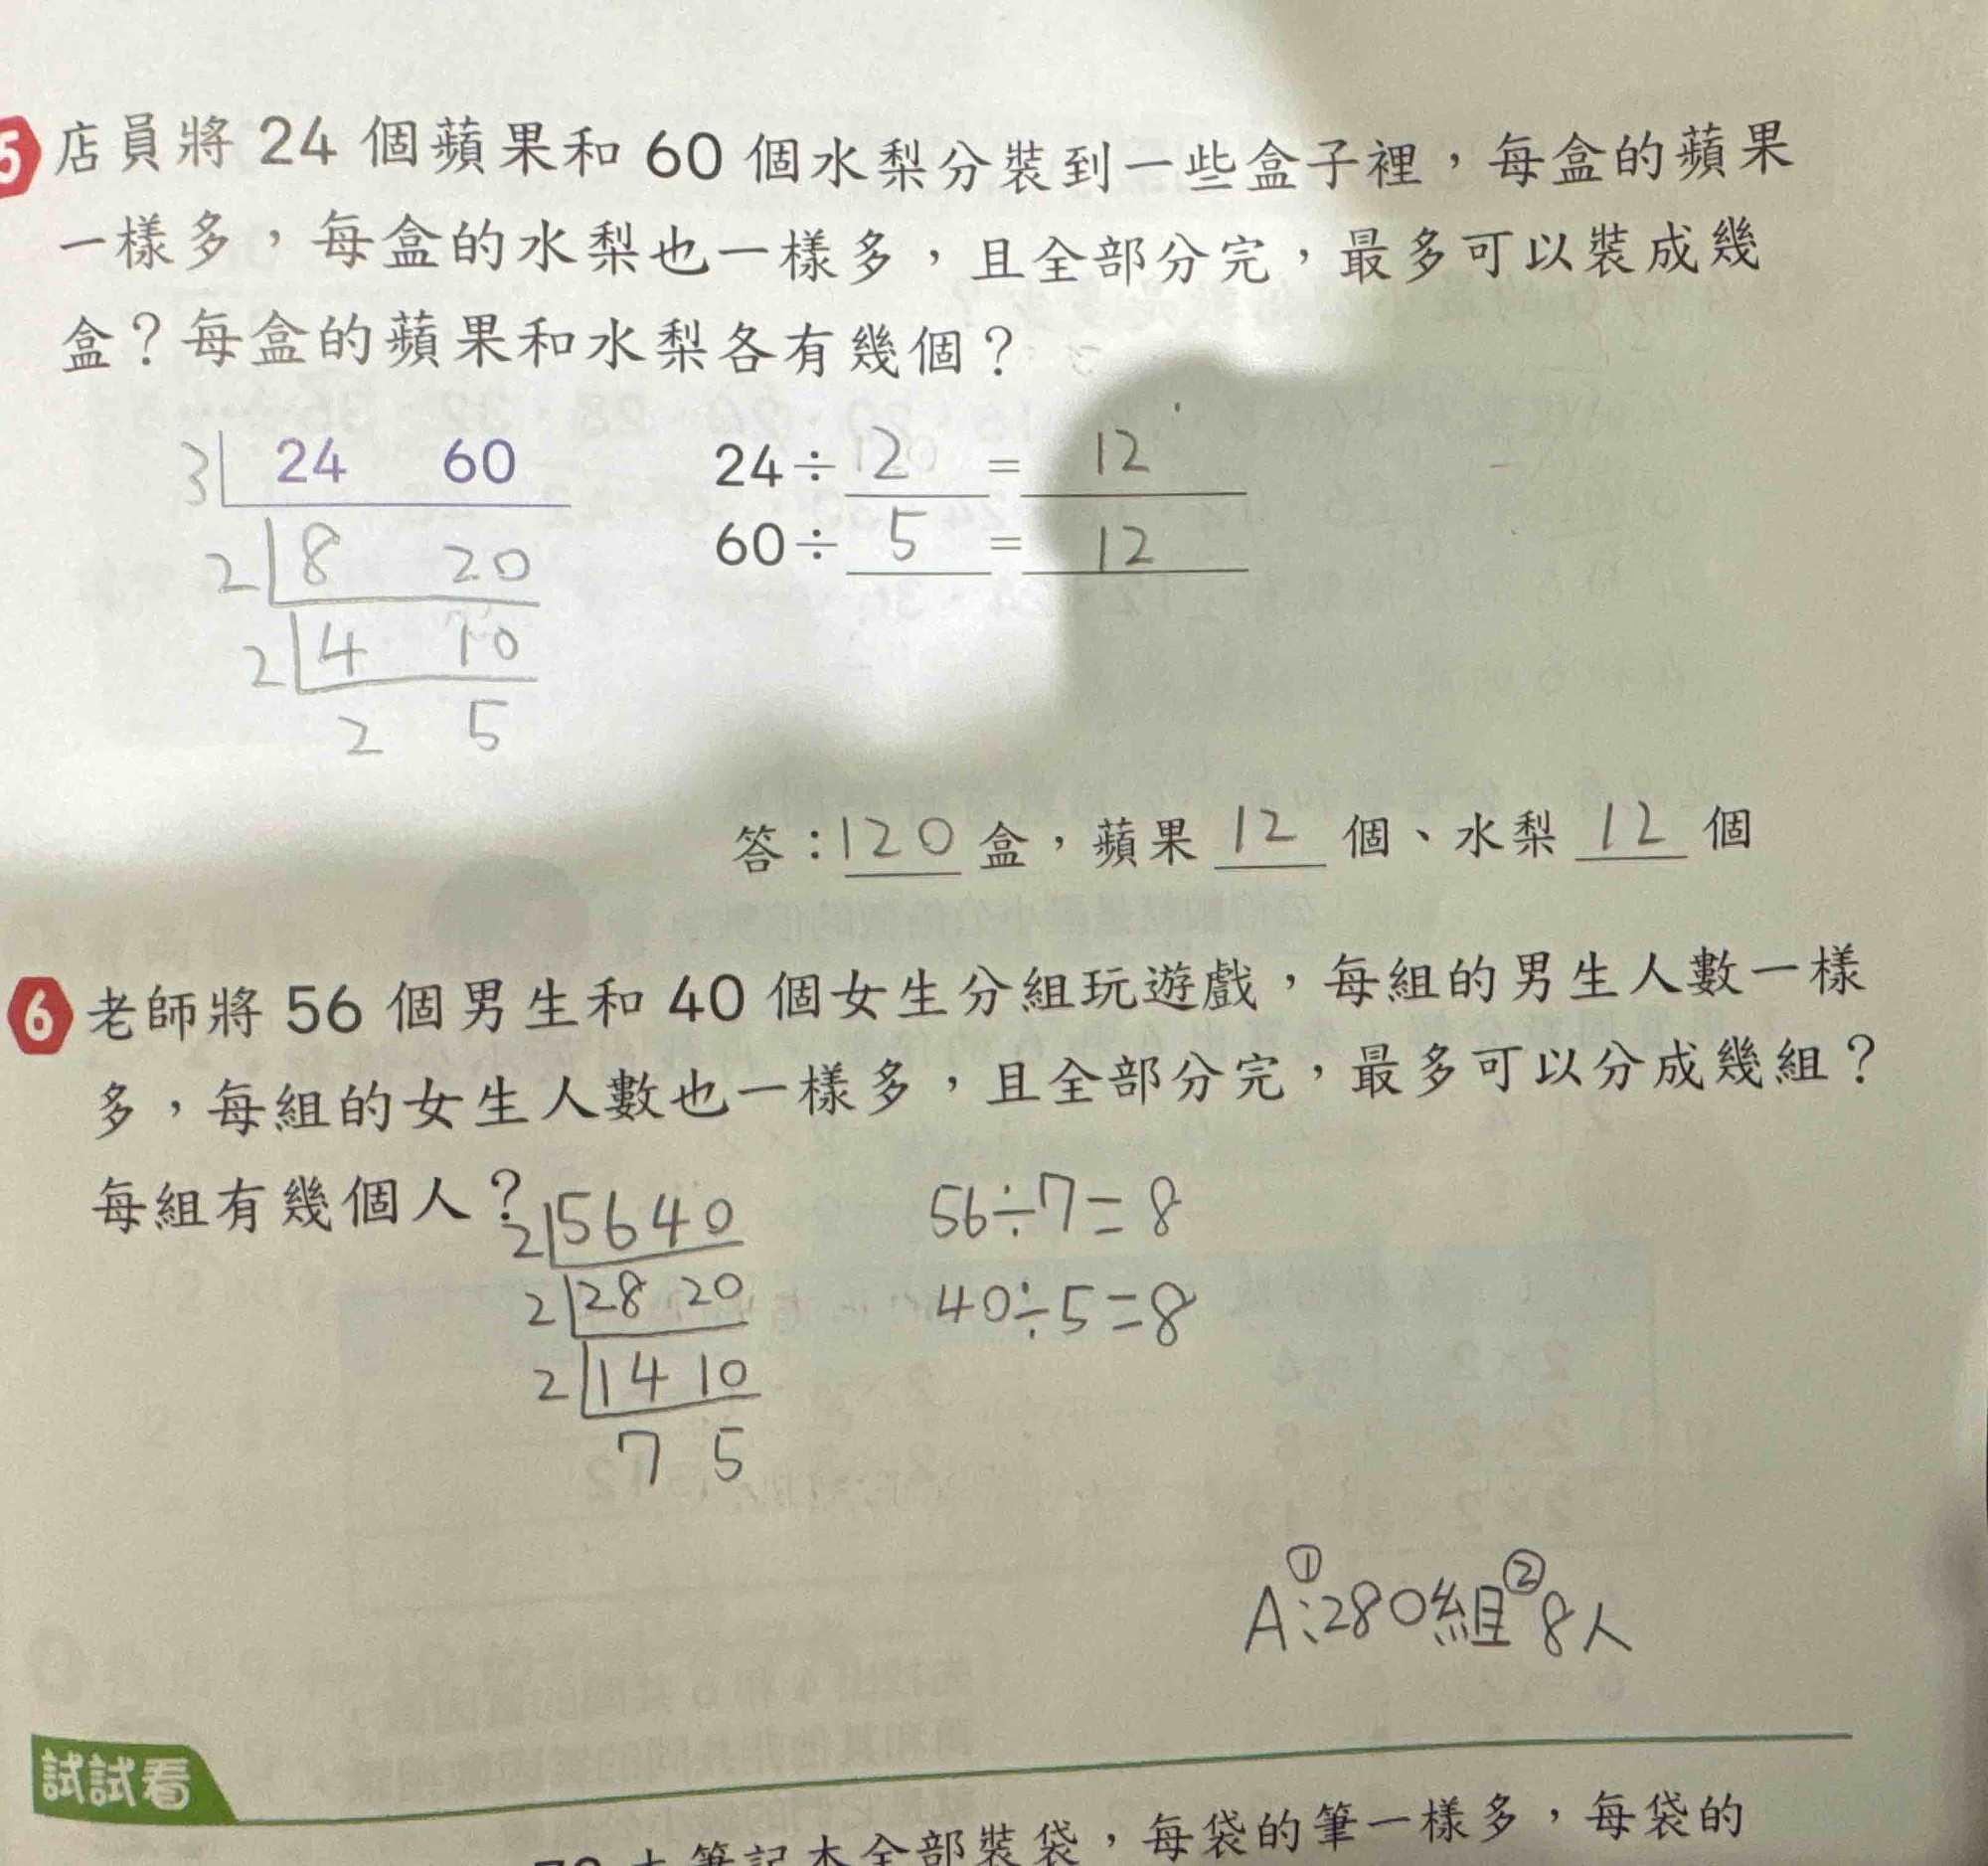 5 店員將 24 個蘋果和 60 個水梨分裝到一些盒子裡，每盒的蘋果
一樣多，每盒的水梨也一樣多，且全部分完，最多可以裝成幾
盒？每盒的蘋果和水梨各有幾個？
3 24 60
2 8 20
2 4 10
2 5
24÷2=12
60÷5=12
答：120盒，蘋果12個、水梨12個
6 老師將 56 個男生和 40 個女生分組玩遊戲，每組的男生人數一樣
多，每組的女生人數也一樣多，且全部分完，最多可以分成幾組？
每組有幾個人？
2 56 40
2 28 20
2 14 10
7 5
56÷7=8
40÷5=8
A:①280組②8人
試試看
筆記本全部裝袋，每袋的筆一樣多，每袋的